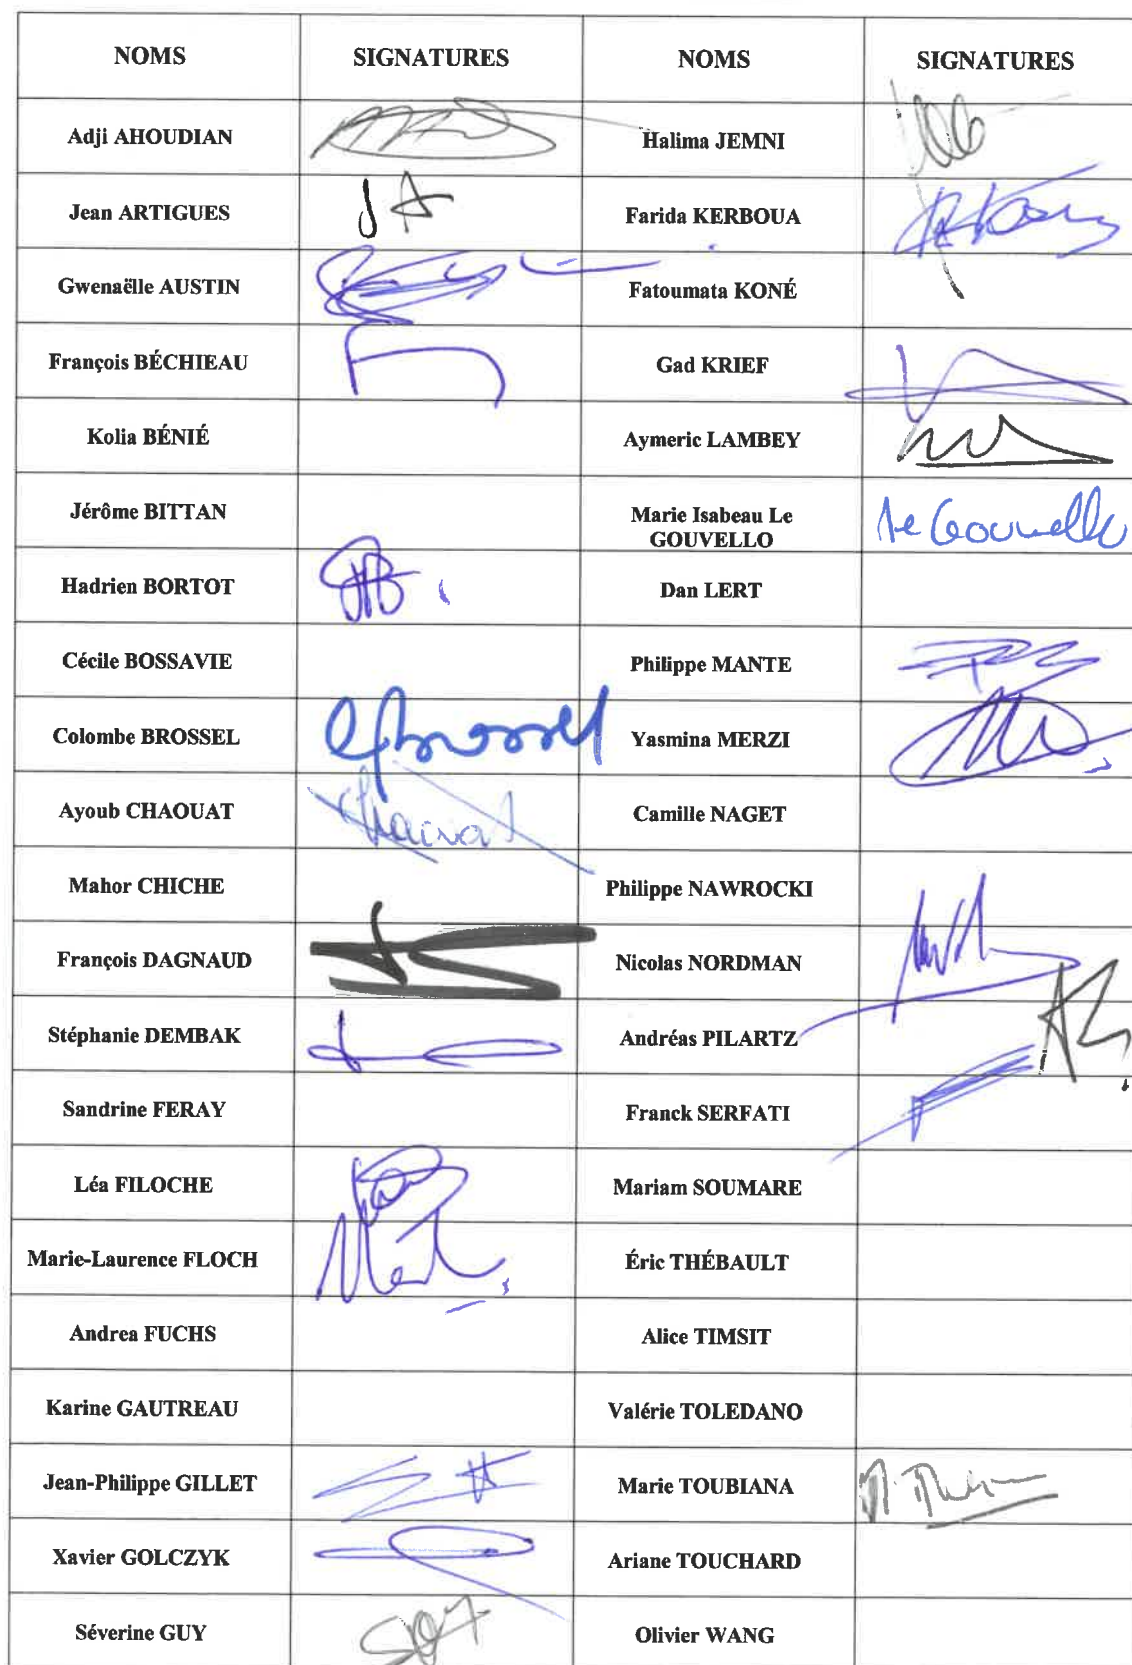 NOMS SIGNATURES NOMS SIGNATURES
Adji AHOUDIAN Halima JEMNI
Jean ARTIGUES JA Farida KERBOUA
Gwenaëlle AUSTIN Fatoumata KONÉ
François BÉCHIEAU Gad KRIEF
Kolia BÉNIÉ Aymeric LAMBEY
Jérôme BITTAN Marie Isabeau Le Le Gouvello
GOUVELLO
Hadrien BORTOT Dan LERT
Cécile BOSSAVIE Philippe MANTE
Colombe BROSSEL CBrossel Yasmina MERZI
Ayoub CHAOUAT Chaouat Camille NAGET
Mahor CHICHE Philippe NAWROCKI
François DAGNAUD Nicolas NORDMAN
Stéphanie DEMBAK Andréas PILARTZ
Sandrine FERAY Franck SERFATI
Léa FILOCHE Mariam SOUMARE
Marie-Laurence FLOCH Éric THÉBAULT
Andrea FUCHS Alice TIMSIT
Karine GAUTREAU Valérie TOLEDANO
Jean-Philippe GILLET Marie TOUBIANA
Xavier GOLCZYK Ariane TOUCHARD
Séverine GUY Olivier WANG